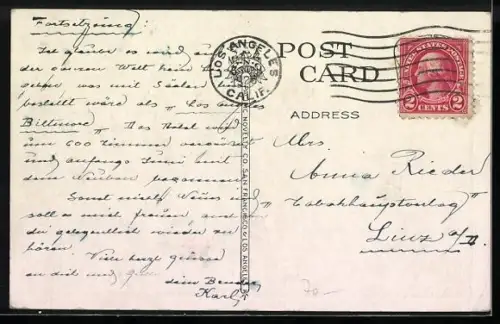 Fortsetzung:
es wird auf
der ganzen Welt kein
geben, was mit Säulen
bestellt wäre als "Los Angeles
Biltmore" Das Hotel wird
um 600 Zimmer vergrössert
und anfangs Juni mit
dem Neubau begonnen
Sonst nichts Neues und
soll es mich freuen,
du gelegentlich wieder zu
hören. Viele herzl. Grüsse
an dich und
dein Bruder
Karl
LOS ANGELES
CALIF.
POST CARD
ADDRESS
UNITED STATES POSTAGE
2 CENTS 2
NOVELTY CO. SAN FRANCISCO & LOS ANGELES
Mrs.
Anna Rieder
Tabakhauptverlag
Linz a/D.
70-